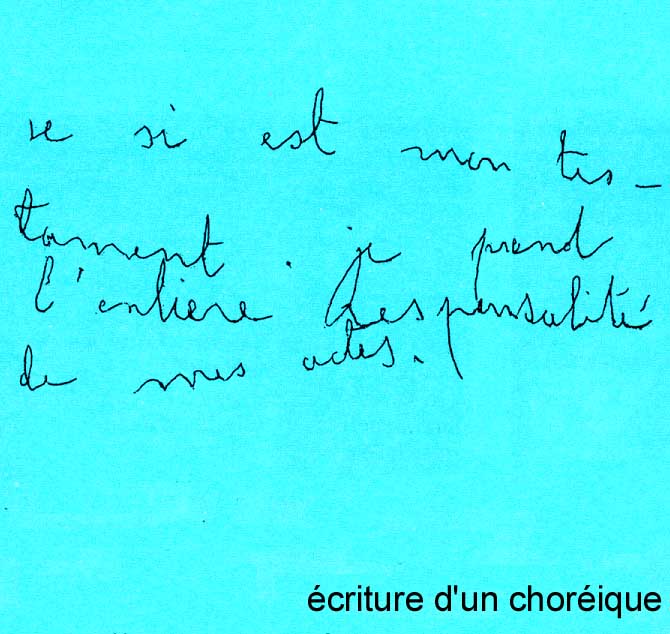 ce si est mon tes_
tament. je prend
l'entiere Responsalité
de mes actes.
écriture d'un choréique